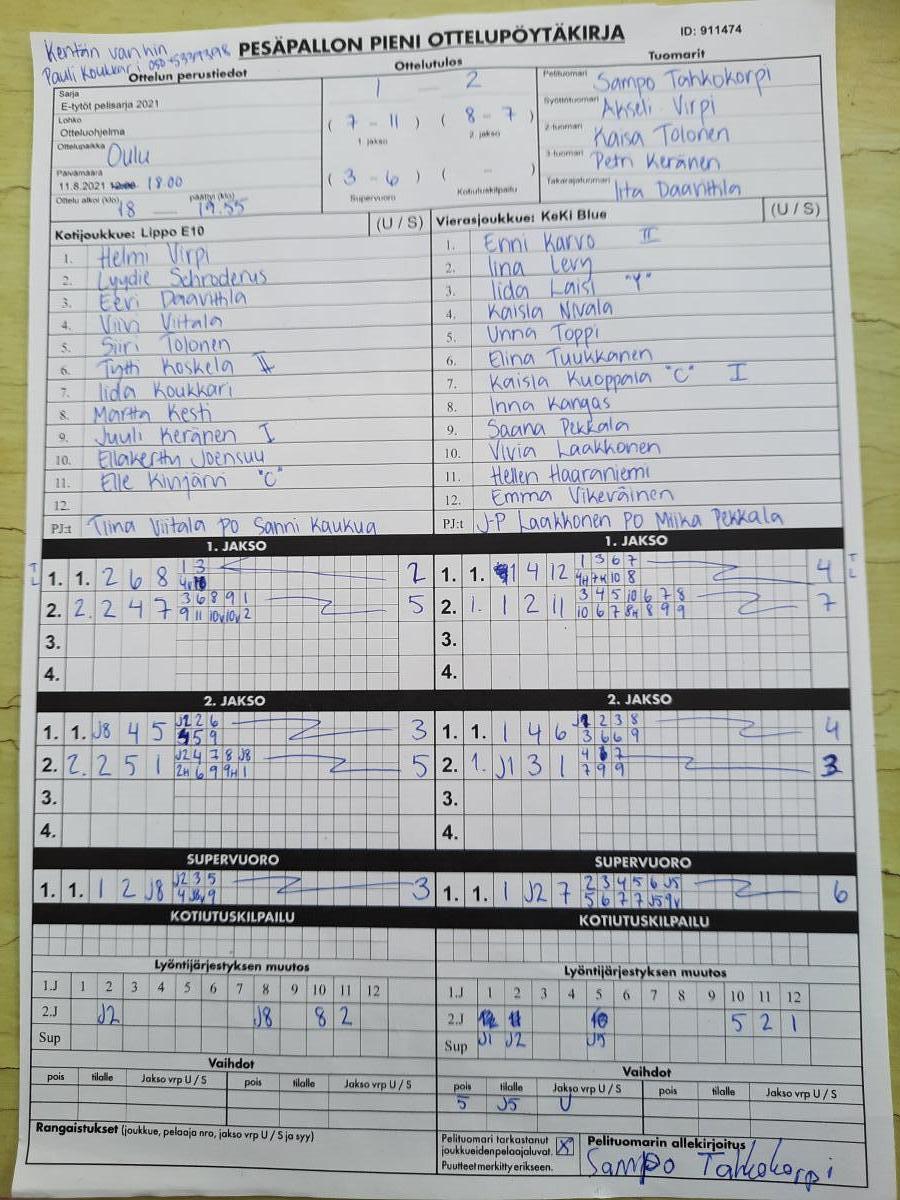 Kentän vanhin
Pauli Koukkari
PESÄPALLON PIENI OTTELUPÖYTÄKIRJA ID: 911474
Ottelun perustiedot Ottelutulos Tuomarit
Sarja
E-tytöt pelisarja 2021
Lohko
Otteluohjelma
Ottelupaikka Oulu
Päivämäärä
11.8.2021 18.00
Ottelu alkoi (klo) päättyi (klo)
18 — 19.55
1 2
( 7 - 11 ) ( 8 - 7 )
1. jakso 2. jakso
( 3 - 6 ) ( - )
Supervuoro Kotiutuskilpailu
Pelituomari Sampo Tahkokorpi
Syöttötuomari Akseli Virpi
2-tuomari Kaisa Tolonen
3-tuomari Petri Keränen
Takarajatuomari Iita Daavittila
Kotijoukkue: Lippo E10 (U / S)
1. Helmi Virpi
2. Lyydie Schroderus
3. Eevi Daavittila
4. Viivi Viitala
5. Siiri Tolonen
6. Tytti Koskela II
7. Iida Koukkari
8. Martta Kesti
9. Juuli Keränen I
10. Ellakerttu Joensuu
11. Elle Kinjärvi "C"
12.
PJ:t Tiina Viitala PO Sanni Kaukua
Vierasjoukkue: KeKi Blue (U / S)
1. Enni Karvo II
2. Iina Levy
3. Iida Laisi "Y"
4. Kaisla Nivala
5. Unna Toppi
6. Elina Tuukkanen
7. Kaisla Kuoppala "C" I
8. Inna Kangas
9. Saana Pekkala
10. Vivia Laakkonen
11. Hellen Haaraniemi
12. Emma Vikeväinen
PJ:t J-P Laakkonen PO Miika Pekkala
1. JAKSO 1. JAKSO
1. 1. 2 6 8 1 3 2
2. 2. 2 4 7 3 6 8 9 1 5
9 11 10v 10v 2
3.
4.
1. 1. 1 4 12 1 3 6 7 4
4H 7H 10 8
2. 1. 1 2 11 3 4 5 10 6 7 8 7
10 6 7 8H 8 9 9
3.
4.
2. JAKSO 2. JAKSO
1. 1. J8 4 5 J2 2 6 3
5 9
2. 2. 2 5 1 J2 4 7 8 J8 5
2H 6 9 9H 1
3.
4.
1. 1. 1 4 6 2 3 8 4
3 6 6 9
2. 1. J1 3 1 4 7 3
7 9 9
3.
4.
SUPERVUORO SUPERVUORO
1. 1. 1 2 J8 J2 3 5 3
4 9
1. 1. 1 J2 7 2 3 4 5 6 J5 6
5 6 7 7 J5 9v
KOTIUTUSKILPAILU KOTIUTUSKILPAILU
Lyöntijärjestyksen muutos
1.J 1 2 3 4 5 6 7 8 9 10 11 12
2.J J2 J8 8 2
Sup
Lyöntijärjestyksen muutos
1.J 1 2 3 4 5 6 7 8 9 10 11 12
2.J 5 2 1
Sup J1 J2 J5
Vaihdot
pois tilalle Jakso vrp U / S pois tilalle Jakso vrp U / S
Vaihdot
pois tilalle Jakso vrp U / S pois tilalle Jakso vrp U / S
5 J5 U
Rangaistukset (joukkue, pelaaja nro, jakso vrp U / S ja syy)
Pelituomari tarkastanut
joukkueidenpelaajaluvat. X
Puutteet merkitty erikseen.
Pelituomarin allekirjoitus
Sampo Tahkokorpi